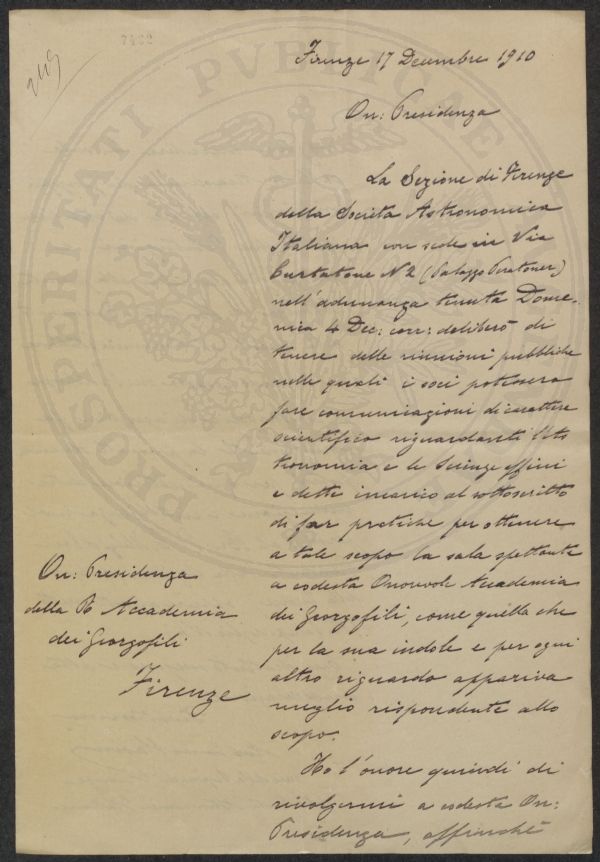 7482
Firenze 17 Decembre 1910
On: Presidenza
La Sezione di Firenze
della Società Astronomica
Italiana con sede in Via
Curtatone N 2 (Palazzo Peratoner)
nell'adunanza tenuta Dome-
nica 4 Dec: corr: deliberò di
tenere delle riunioni pubbliche
nelle quali i soci potessero
fare comunicazioni di carattere
scientifico riguardanti l'As
tronomia e le Scienze affini
e dette incarico al sottoscritto
di far pratiche per ottenere
a tale scopo la sala spettante
a codesta Onorevole Accademia
dei Georgofili, come quella che
per la sua indole e per ogni
altro riguardo appariva
meglio rispondente allo
scopo.
Ho l'onore quindi di
rivolgermi a codesta On:
Presidenza, affinchè
On: Presidenza
della R Accademia
dei Georgofili
Firenze
PROSPERITATI PUBLICAE